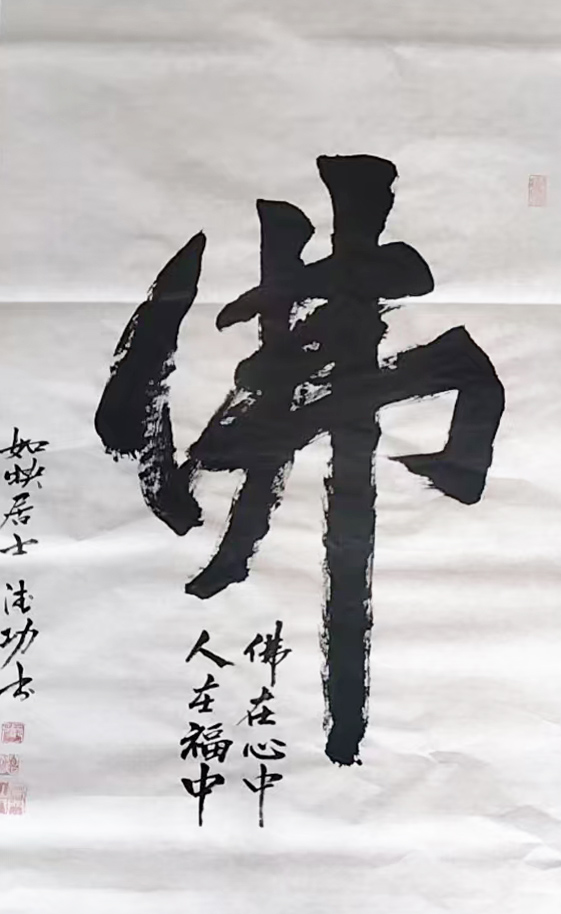 佛
佛在心中
人在福中
如映居士 法功书